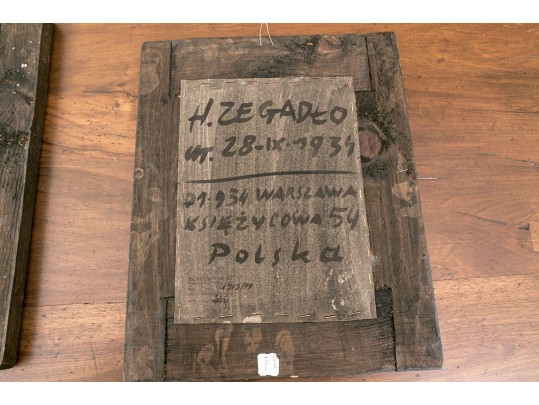 H. ZEGADŁO
ur. 28-IX-1934
01-934 WARSZAWA
KSIĘŻYCOWA 54
Polska